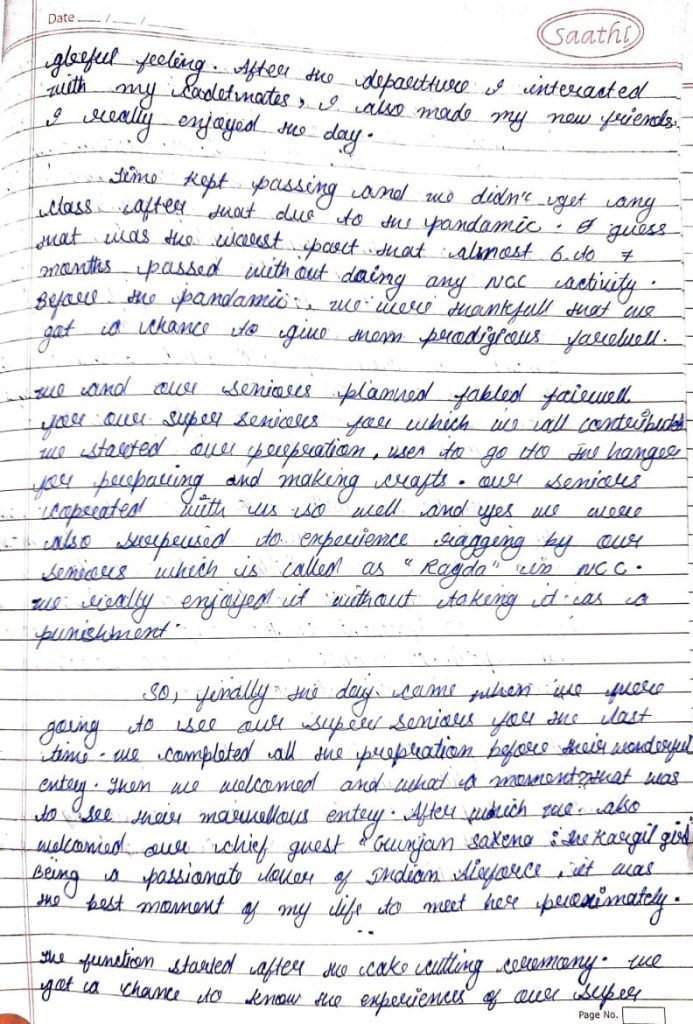 Date ___/___/___
Saathi
gleeful feeling. After the departure I interacted
with my cadetmates, I also made my new friends.
I really enjoyed the day.
Time kept passing and we didn't get any
class after that due to the pandamic. I guess
that was the worst part that almost 6 to 7
months passed without doing any NCC activity.
Before the pandamic, we were thankfull that we
got a chance to give them prodigious farewell.
We and our seniors planned fabled fairwell
for our super seniors for which we all contribute
we started our prepration, user to go to the hanger
for preparing and making crafts. our seniors
copreated with us so well and yes we were
also surprised to experience ragging by our
seniors which is called as "Ragda" in NCC.
we really enjoyed it without taking it as a
punishment.
SO, finally the day came when we were
going to see our super seniors for the last
time. we completed all the prepration before their wonderful
entry. Then we welcomed and what a moment that was
to see their marvellous entry. After which we also
welcomed our chief guest "Gunjan Saxena : the Kargil girl
Being a passionate lover of Indian Airforce, it was
the best moment of my life to meet her proximately.
The function started after the cake cutting ceremony. we
got a chance to know the experiences of our super
Page No.